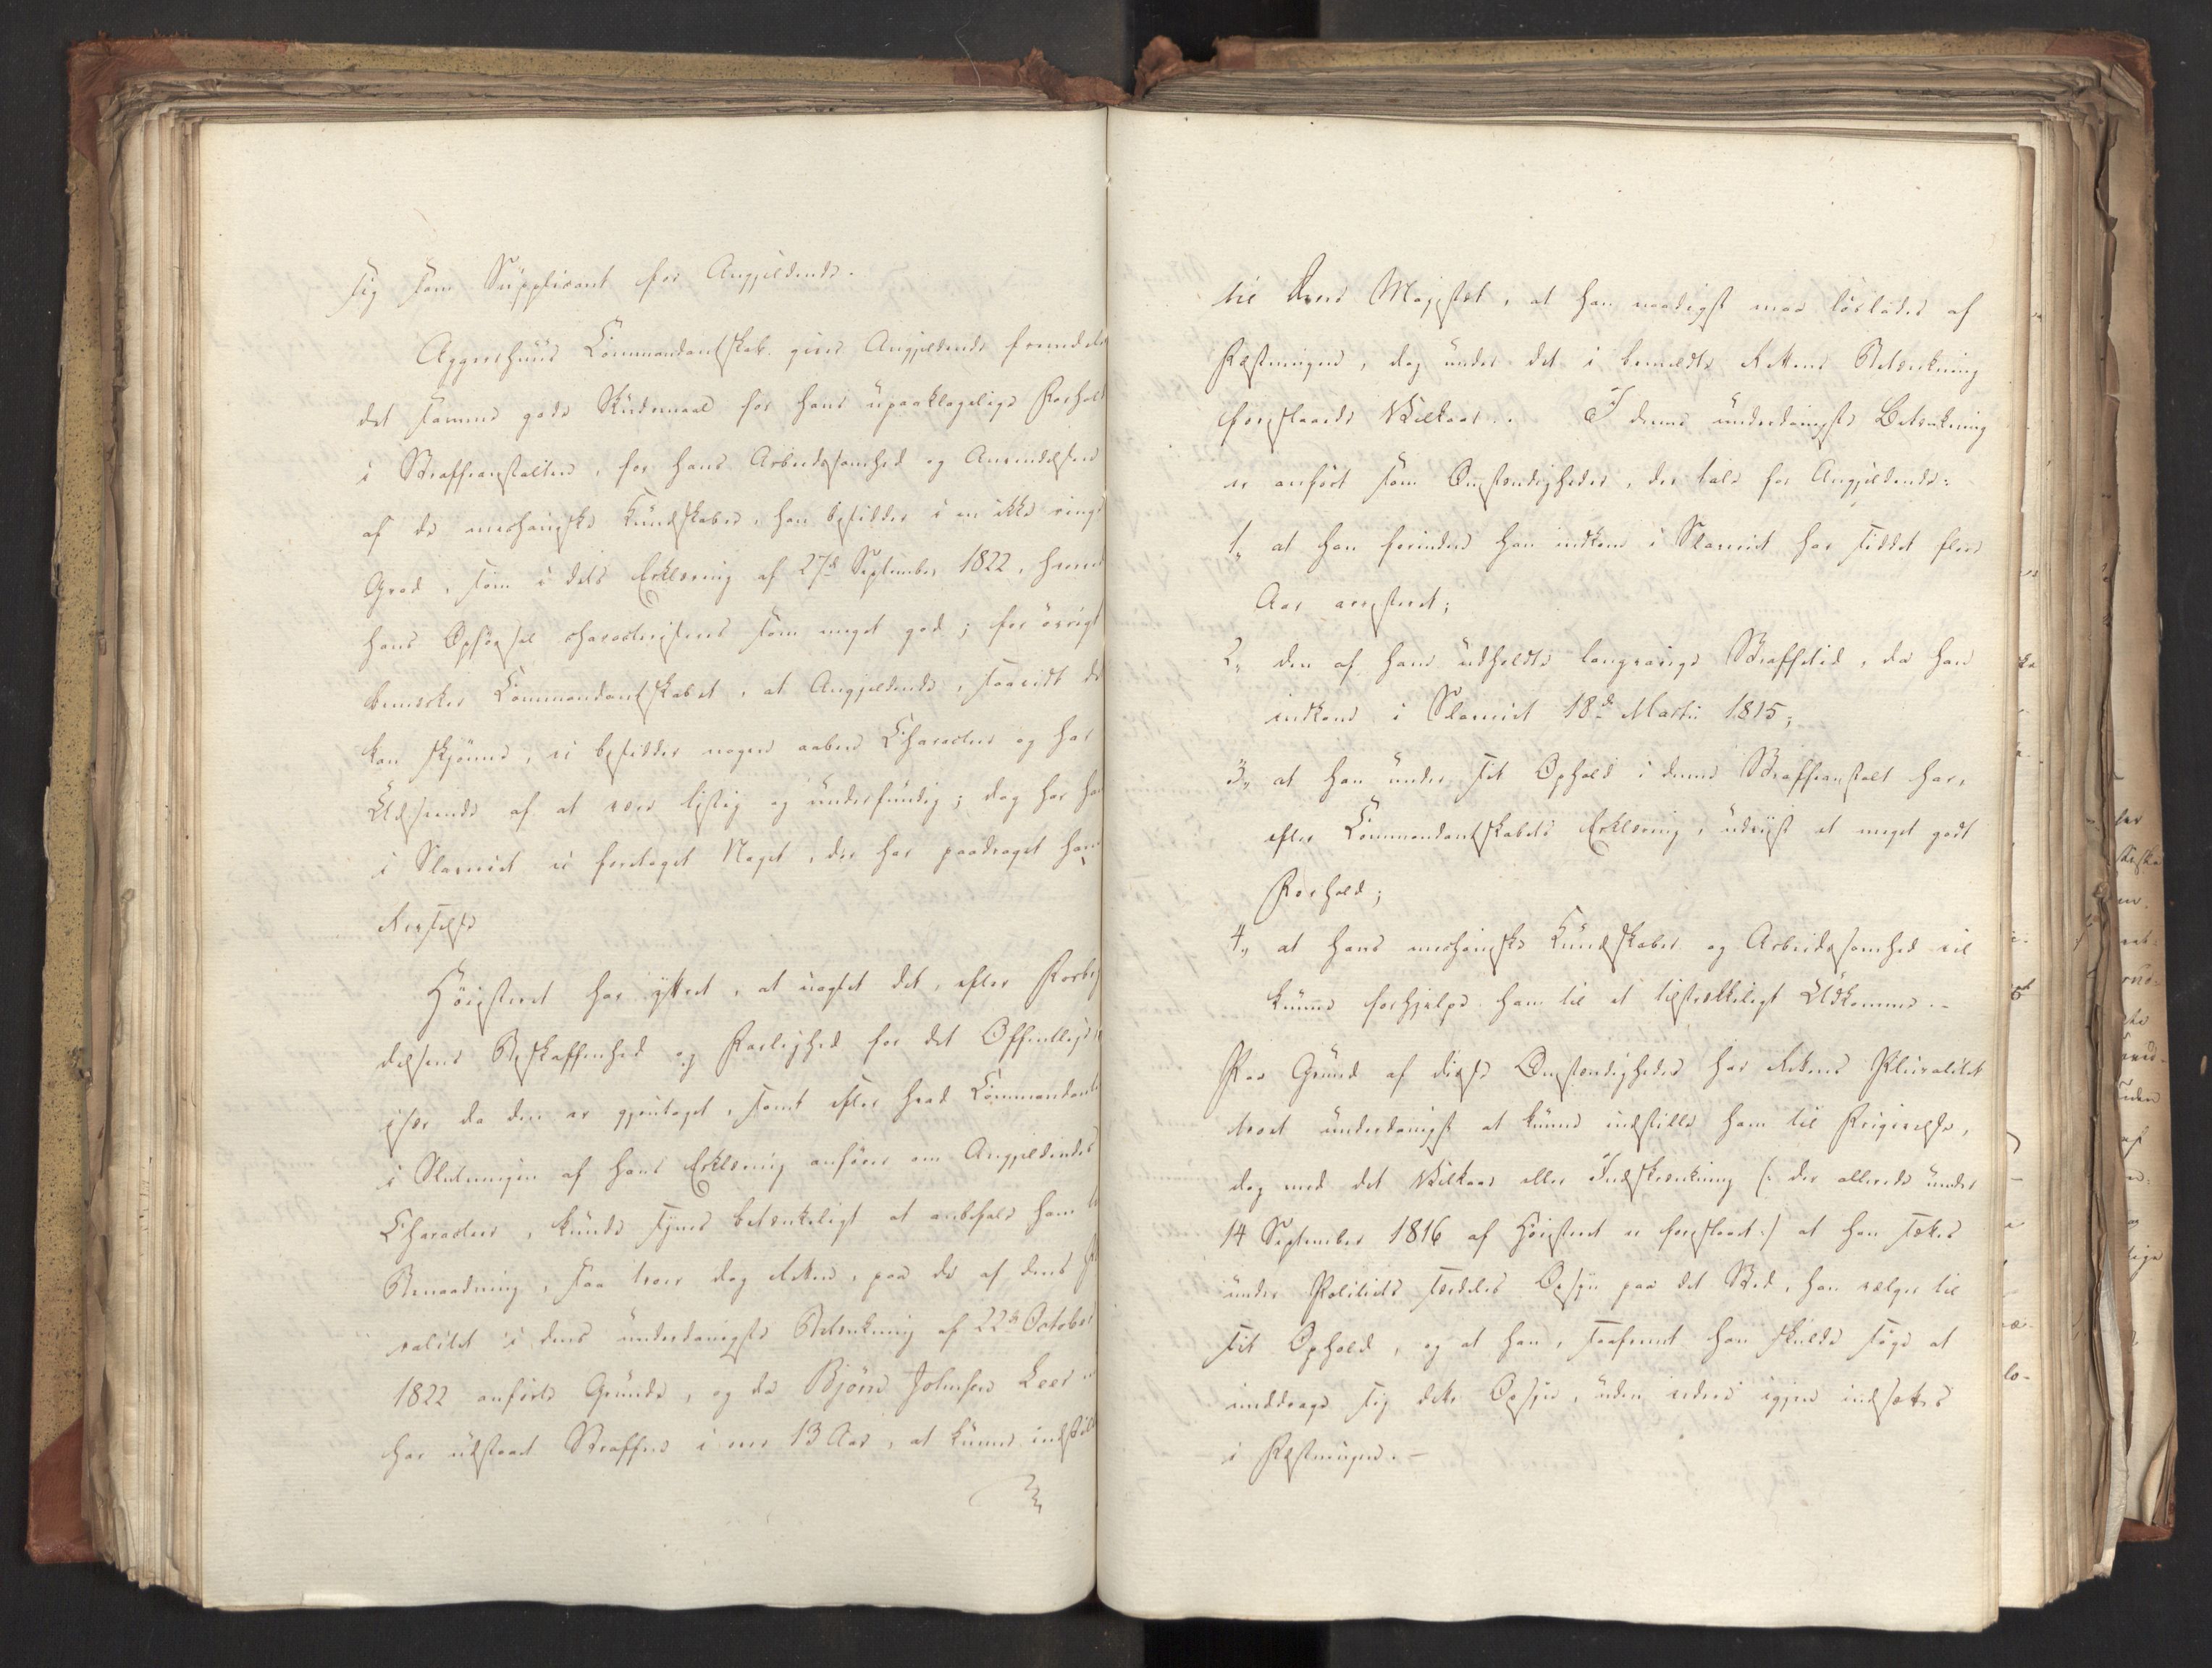 sig som Supplicant for Angjeldende.
Aggershuus Commandantskab giver Angjeldende fremdeles
det samme gode Skudsmaal for hans upaaklagelige Forhold
i Straffeanstalten, for hans Arbeidsomhed og Anvendelsen
af de mechaniske Kundskaber, han besidder i en ikke ringe
Grad, som i dets Erklæring af 27de September 1822, hvori
hans Opførsel characteriseres som meget god; for øvrigt
bemærker Commandantskabet, at Angjeldende, saavidt de
kan skjønne, ei besidder nogen aaben Characteer og har
Udseende af at være listig og underfundig; dog har han
i Slaveriet ei foretaget Noget, der har paadraget ham
Revselse
Høiesteret har yttret, at uagtet det, efter Forbry
delsens Beskaffenhed og Farlighed for det Offentlige,
især da den er gjentaget, samt efter hvad Commandanten
i Slutningen af hans Erklæring anfører om Angjeldendes
Characteer, kunde synes betænkeligt at anbefale ham til
Benaadning, saa troer dog Retten, paa de af dens Plu
ralitet i dens underdanigste Betænkning af 22de October
1822 anførte Grunde, og da Bjørn Johnsen Leer nu
har udstaaet Straffen i over 13 Aar, at kunne indstille
til Deres Majestæt, at han naadigst maa løslades af
Fæstningen, dog under det i bemeldte Rettens Betænkning
foreslaaede Vilkaar. I denne underdanigste Betænkning
er anført som Omstændigheder, der tale for Angjeldende:
1, at han forinden han indkom i Slaveriet har siddet flere
Aar arresteret;
2, den af ham udholdte langvarige Straffetid, da han
indkom i Slaveriet 18de Martii 1815;
3, at han under sit Ophold i denne Straffeanstalt har,
efter Commandantskabets Erklæring, udviist et meget godt
Forhold;
4, at hans mechaniske Kundskaber og Arbeidsomhed vil
kunne forhjelpe ham til et tilstrækkeligt Udkomme.-
Paa Grund af disse Omstændigheder har Rettens Pluralitet
troet underdanigst at kunne indstille ham til Frigivelse,
dog med det Vilkaar eller Indskrænkning (: der allerede under
14 September 1816 af Høiesteret er foreslaaet :) at han sættes
under Politiets særdeles Opsyn paa det Sted, han vælger til
sit Ophold, og at han, saafremt han skulde søge at
unddrage sig dette Opsyn, uden videre igjen indsættes
i Fæstningen.-